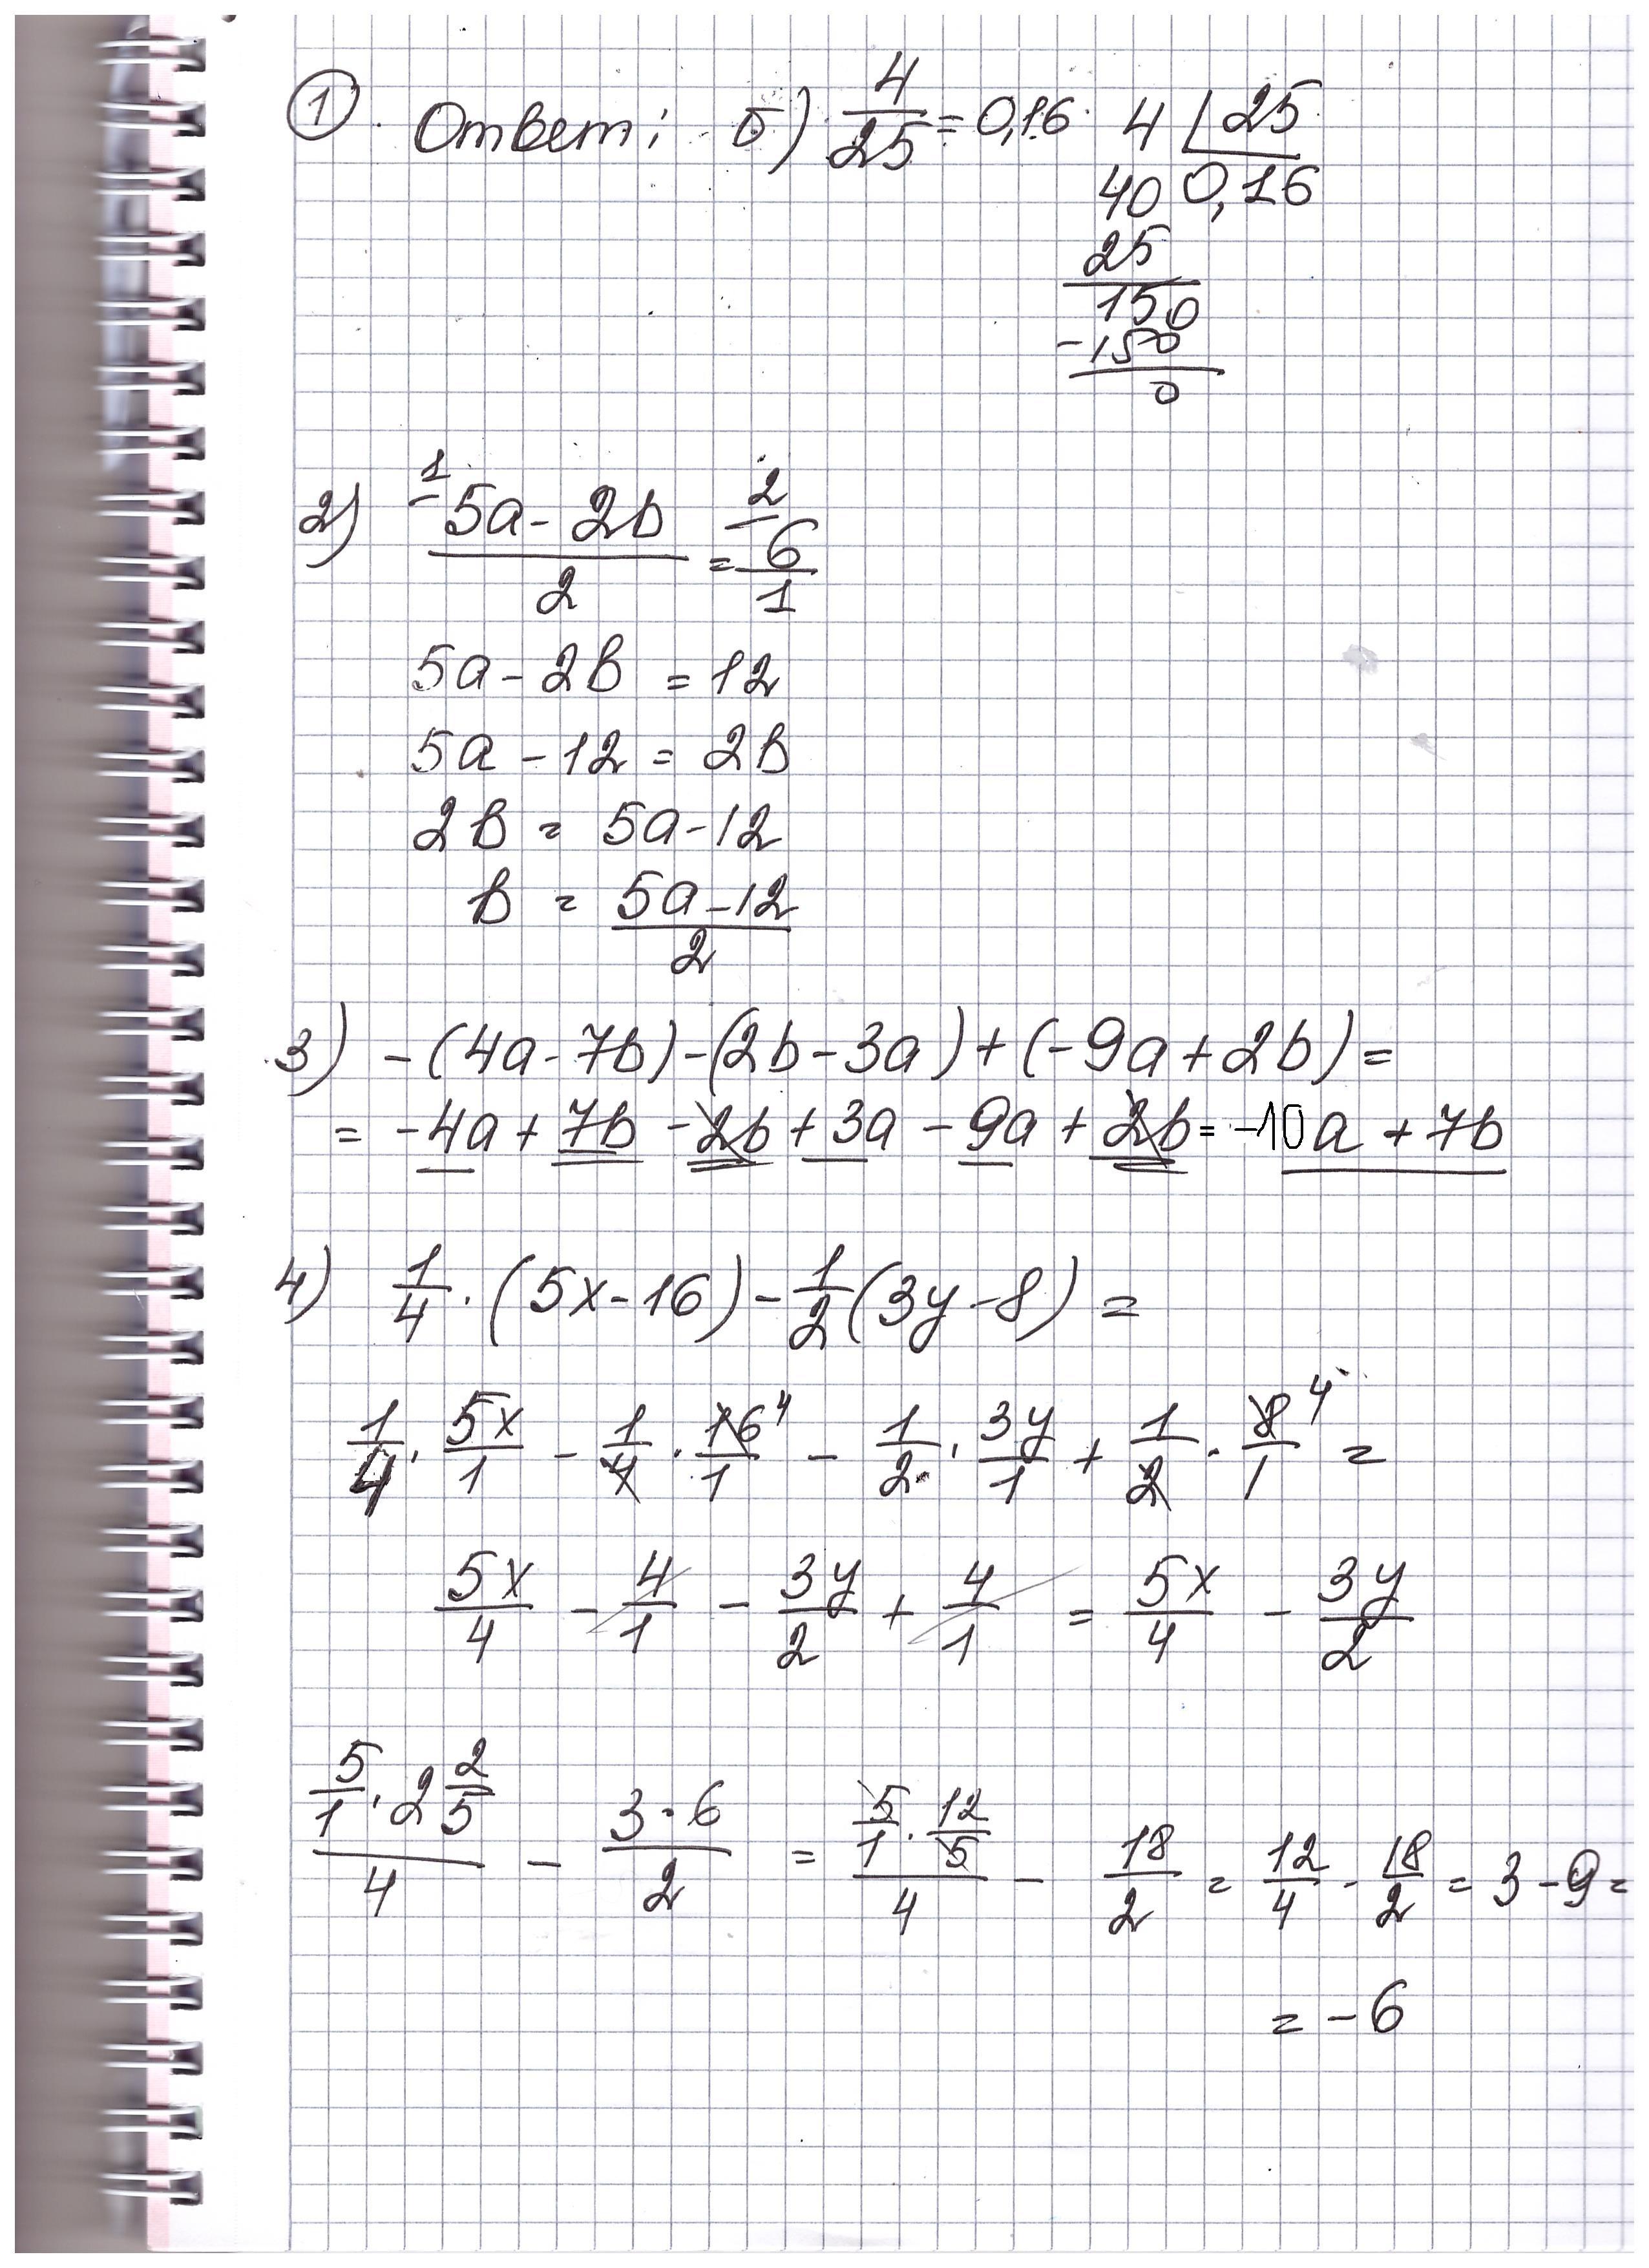 ① Ответ: б) 4/25 = 0,16 4 | 25
40 0,16
25
150
-150
0
2) ¹⁻ (5a - 2b)/2 = ²⁻ 6/1
5a - 2b = 12
5a - 12 = 2b
2b = 5a - 12
b = (5a - 12)/2
3) - (4a - 7b) - (2b - 3a) + (-9a + 2b) =
= -4a + 7b - 2b + 3a - 9a + 2b = -10a + 7b
4) 1/4 · (5x - 16) - 1/2 (3y - 8) =
1/4 · 5x/1 - 1/4 · 16⁴/1 - 1/2 · 3y/1 + 1/2 · 8⁴/1 =
5x/4 - 4/1 - 3y/2 + 4/1 = 5x/4 - 3y/2
(5/1 · 2 2/5)/4 - (3 · 6)/2 = (5/1 · 12/5)/4 - 18/2 = 12/4 - 18/2 = 3 - 9 =
= -6